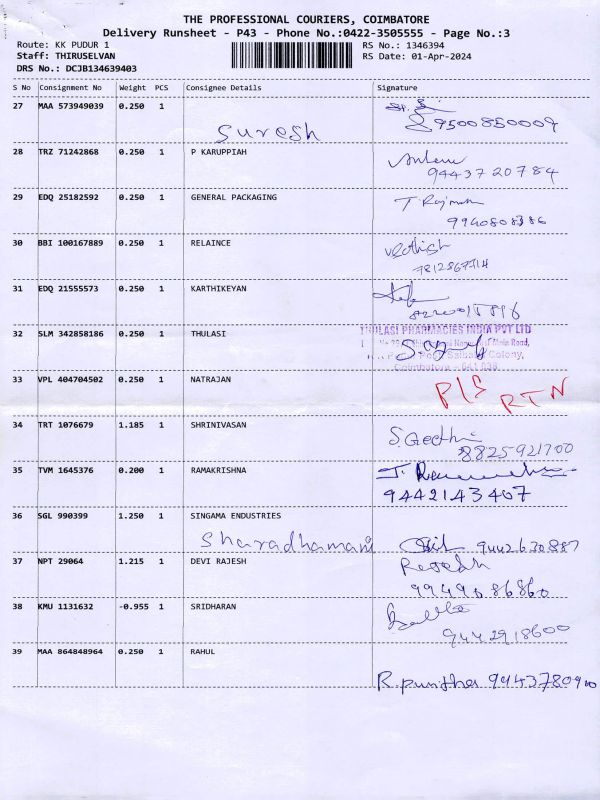 THE PROFESSIONAL COURIERS, COIMBATORE
Delivery Runsheet - P43 - Phone No.:0422-3505555 - Page No.:3
Route: KK PUDUR 1 RS No.: 1346394
Staff: THIRUSELVAN RS Date: 01-Apr-2024
DRS No.: DCJB134639403
S No Consignment No Weight PCS Consignee Details Signature
27 MAA 573949039 0.250 1
Suresh 9500850009
28 TRZ 71242868 0.250 1 P KARUPPIAH
9443720784
29 EDQ 25182592 0.250 1 GENERAL PACKAGING
9940808386
30 BBI 100167889 0.250 1 RELAINCE
7812867114
31 EDQ 21555573 0.250 1 KARTHIKEYAN
32 SLM 342858186 0.250 1 THULASI
THULASI PHARMACIES INDIA PVT LTD
Main Road,
Colony,
Coimbatore
33 VPL 404704502 0.250 1 NATRAJAN
P/S RTN
34 TRT 1076679 1.185 1 SHRINIVASAN
S. Geethi
8825921700
35 TVM 1645376 0.200 1 RAMAKRISHNA
9442143407
36 SGL 990399 1.250 1 SINGAMA ENDUSTRIES
Sharadhamani 9442630887
37 NPT 29064 1.215 1 DEVI RAJESH
9949086860
38 KMU 1131632 -0.955 1 SRIDHARAN
9442918600
39 MAA 864848964 0.250 1 RAHUL
R. punitha 9443780900